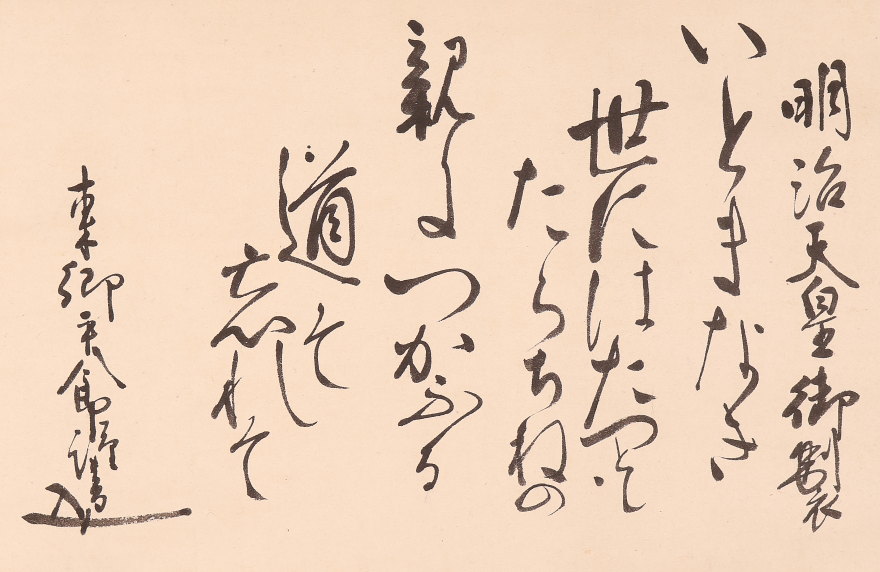 明治天皇御製
いとまなき
世にはたつとも
たらちねの
親につかふる
道な
忘れそ
東郷平八郎謹書